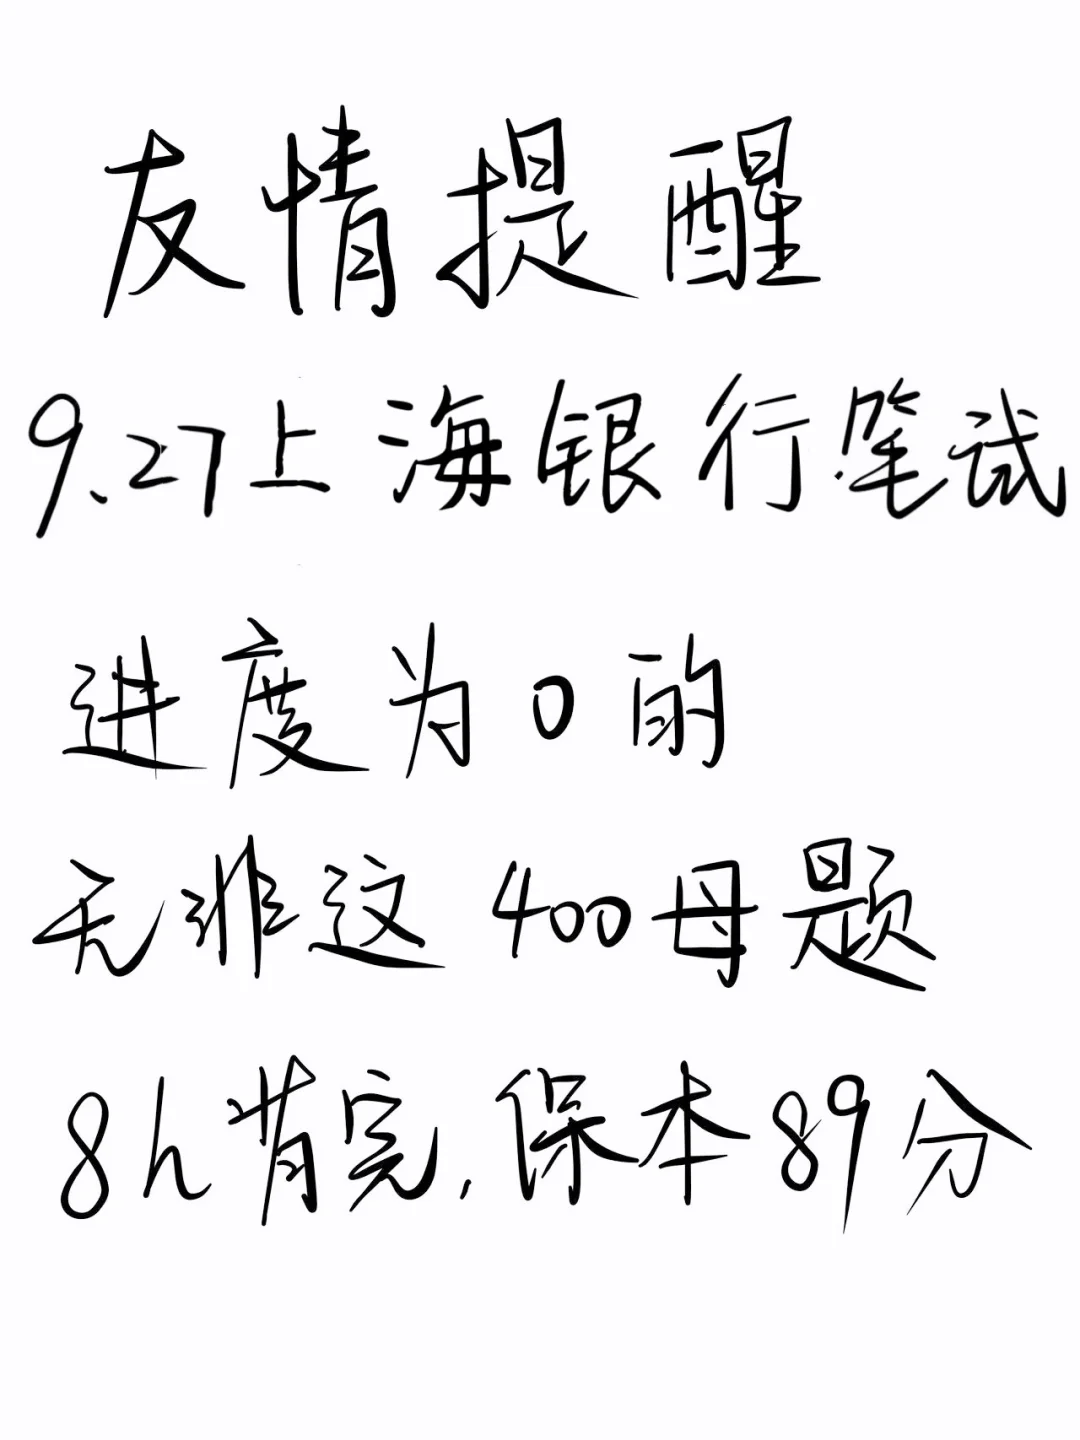 友情提醒
9.27上海银行笔试
进度为0的
无非这400母题
8h背完,保本89分